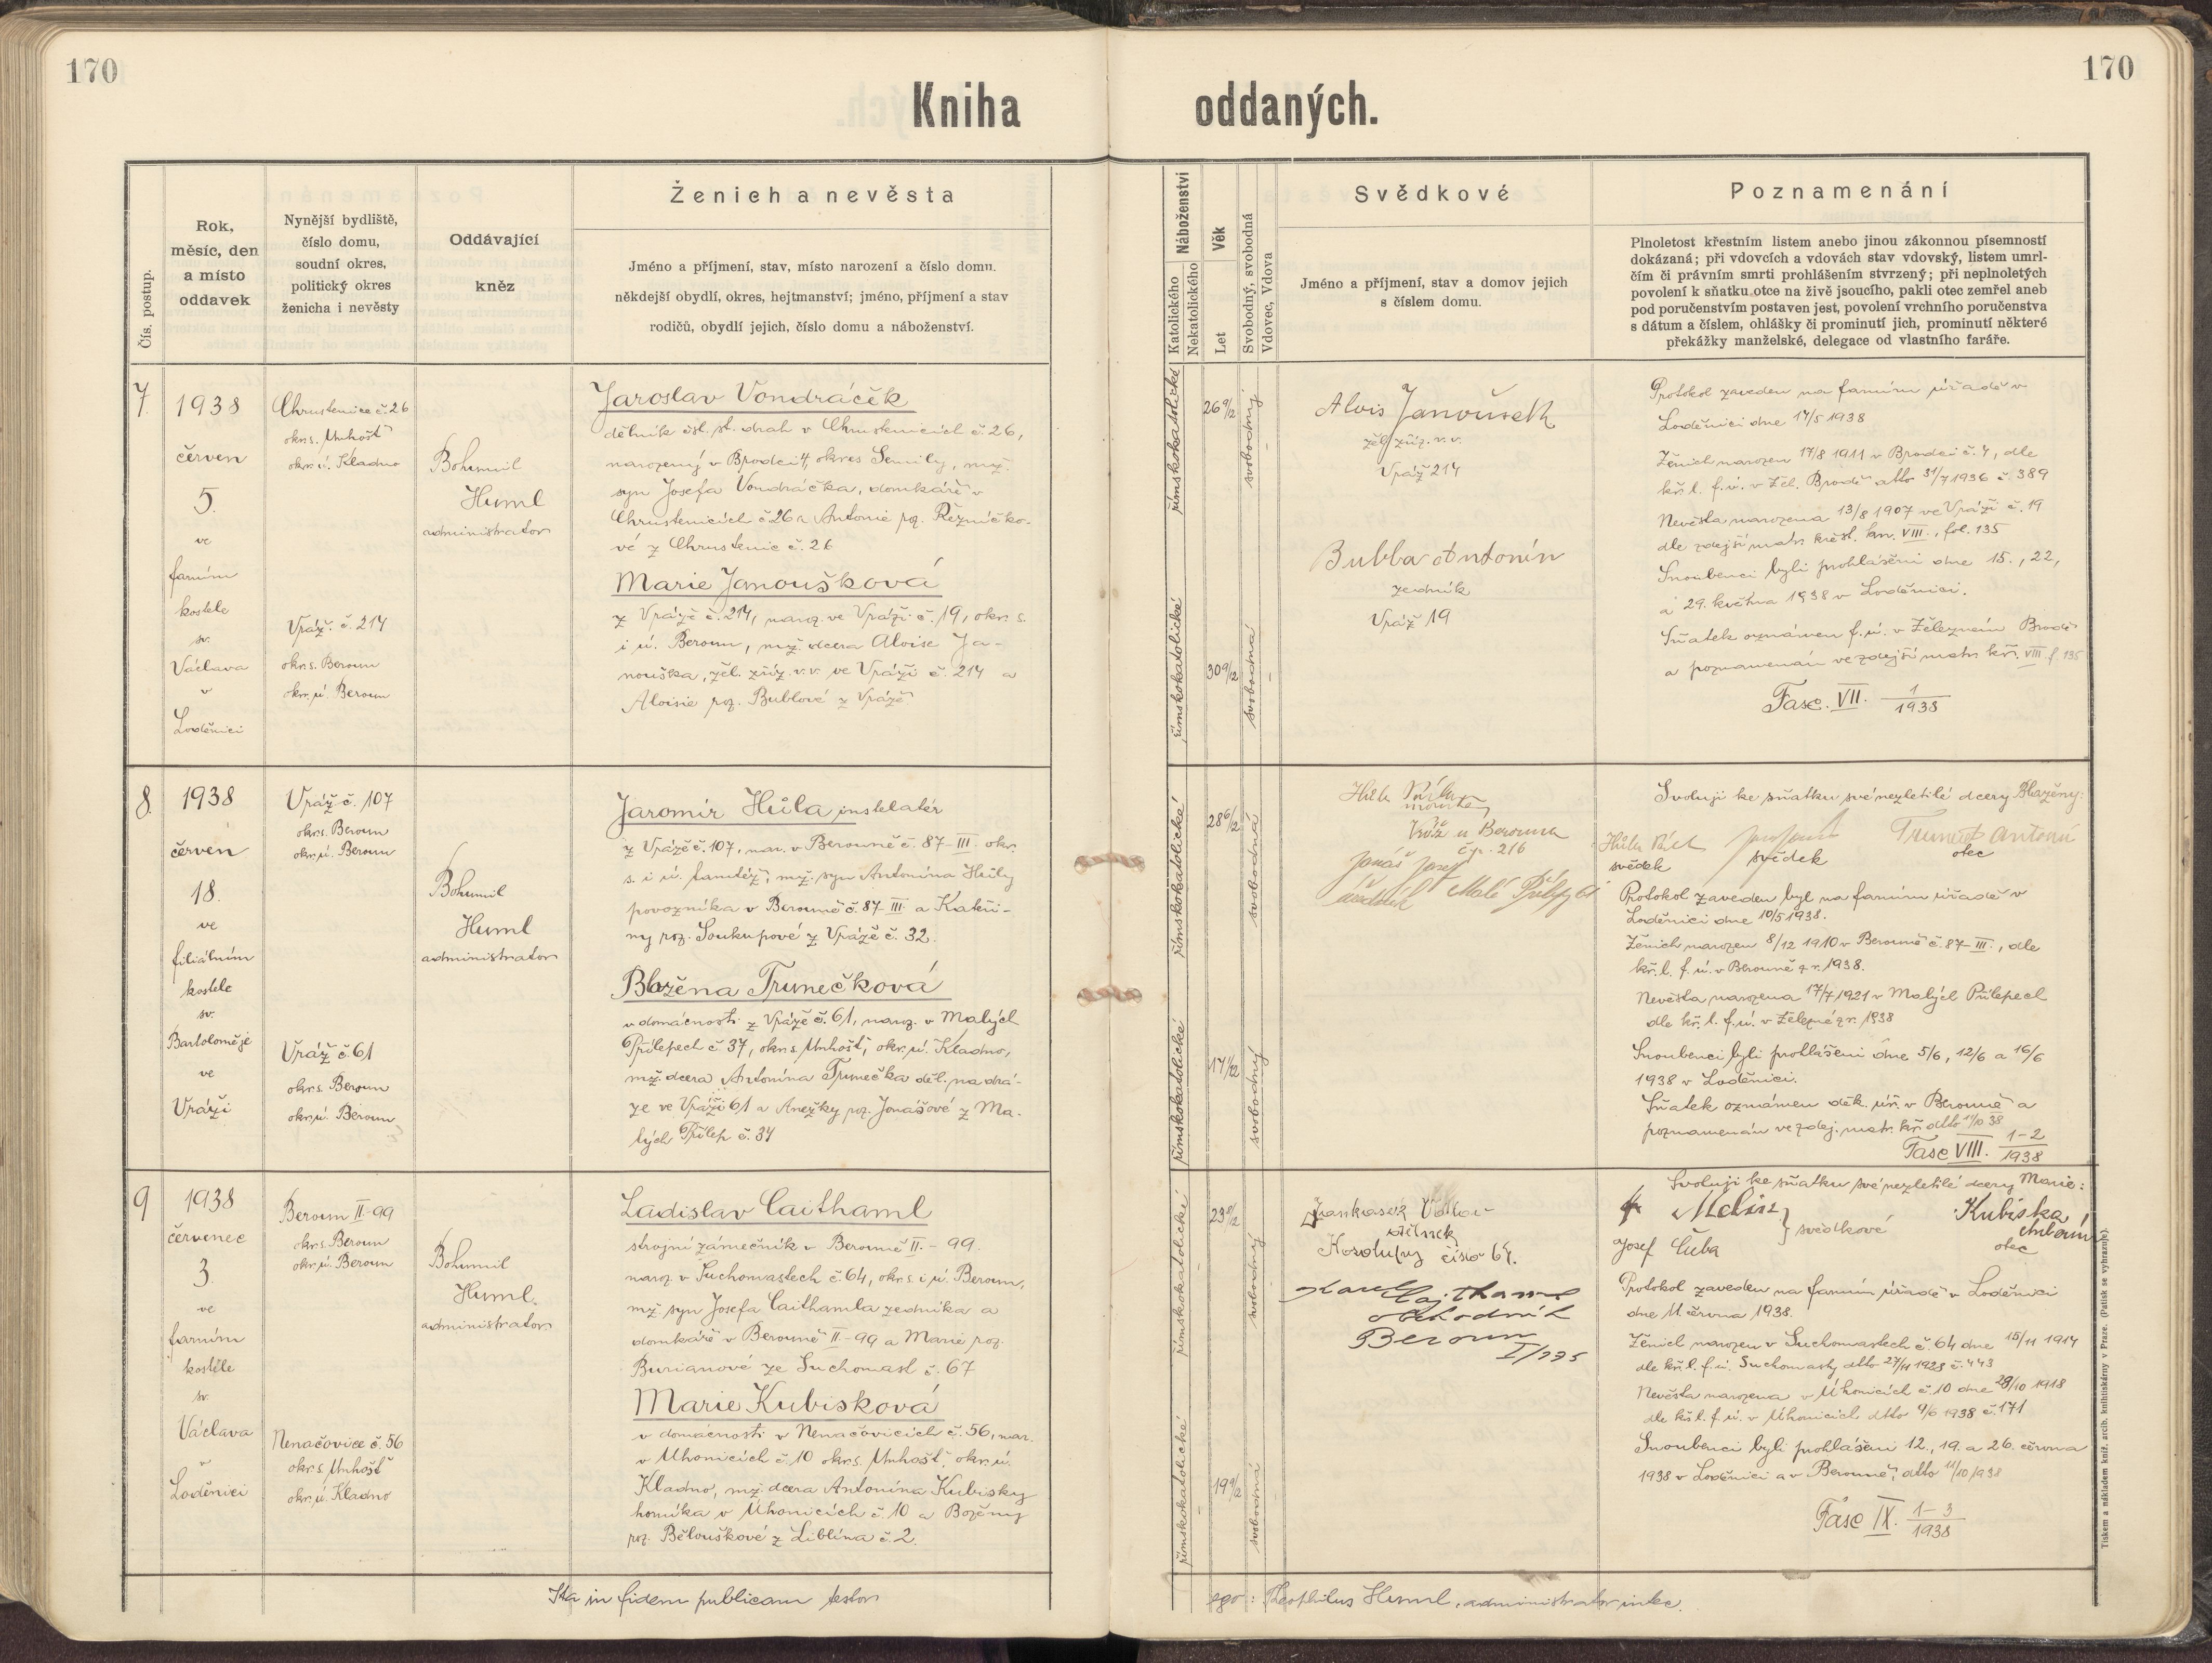 170
170
Kniha oddaných.
Čís. postup.
Rok,
měsíc, den
a místo
oddavek
Nynější bydliště,
číslo domu,
soudní okres,
politický okres
ženicha i nevěsty
Oddávající
kněz
Ženich a nevěsta
Jméno a příjmení, stav, místo narození a číslo domu.
někdejší obydlí, okres, hejtmanství; jméno, příjmení a stav
rodičů, obydlí jejich, číslo domu a náboženství.
Náboženství
Katolického
Nekatolického
Věk
Let
Svobodný, svobodná
Vdovec, Vdova
Svědkové
Jméno a příjmení, stav a domov jejich
s číslem domu.
Poznamenání
Plnoletost křestním listem anebo jinou zákonnou písemností
dokázaná; při vdovcích a vdovách stav vdovský, listem umrl-
čím či právním smrti prohlášením stvrzený; při neplnoletých
povolení k sňatku otce na živě jsoucího, pakli otec zemřel aneb
pod poručenstvím postaven jest, povolení vrchního poručenstva
s dátum a číslem, ohlášky či prominutí jich, prominutí některé
překážky manželské, delegace od vlastního faráře.
7.
1938
červen
5.
ve
farním
kostele
sv.
Václava
v
Loděnici
Chrustenice č. 26
okr. s. Unhošť
okr. ú. Kladno
Vráž. č. 214
okr. s. Beroun
okr. ú. Beroun
Bohumil
Huml
administrator
Jaroslav Vondráček
dělník čsl. st. drah v Chrustenicích č. 26,
narozený v Brodci 4, okres Semily, mž.
syn Josefa Vondráčka, domkáře v
Chrustenicích č. 26 a Antonie roz. Řezníčko-
vé z Chrustenic č. 26
Marie Janoušková
z Vráže č. 214, naroz. ve Vráži č. 19, okr. s.
i ú. Beroun, mž. dcera Aloise Ja-
nouška, žel. zříz. v. v. ve Vráži č. 214 a
Aloisie roz. Bublové z Vráže
římskokatolické
římskokatolické
26 9/12
30 9/12
svobodný
svobodná
Alois Janoušek
žel. zříz. v. v.
Vráž 214
Bubla Antonín
zedník
Vráž 19
Protokol zaveden na farním úřadě v
Loděnici dne 17/5 1938
Ženich narozen 17/8 1911 v Brodci č. 4, dle
kř. l. f. ú. v Žel. Brodě dtto 31/7 1936 č. 389
Nevěsta narozena 13/8 1907 ve Vráži č. 19
dle zdejší matr. křest. kn. VIII., fol. 135
Snoubenci byli prohlášeni dne 15., 22,
a 29. května 1938 v Loděnici.
Sňatek oznámen f. ú. v Železném Brodě
a poznamenán ve zdejší matr. kř. VIII f. 135
Fasc. VII. 1/1938
8.
1938
červen
18.
ve
filiálním
kostele
sv.
Bartoloměje
ve
Vráži
Vráž č. 107
okr. s. Beroun
okr. ú. Beroun
Vráž č. 61
okr. s. Beroun
okr. ú. Beroun
Bohumil
Huml
administrator
Jaromír Hůla instalatér
z Vráže č. 107, nar. v Berouně č. 87-III. okr.
s. i ú. tamtéž, mž. syn Antonína Hůly
povozníka v Berouně č. 87-III. a Kateři-
ny roz. Soukupové z Vráže č. 32.
Blažena Trunečková
v domácnosti z Vráže č. 61, naroz. v Malých
Přílepech č. 37, okr. s. Unhošť, okr. ú. Kladno,
mž. dcera Antonína Trunečka děl. na drá-
ze ve Vráži 61 a Anežky roz. Jonášové z Ma-
lých Přílep č. 34
římskokatolické
římskokatolické
28 6/12
17 1/12
svobodná
svobodný
Vráž u Berouna
č.p. 216
Jonáš Josef
Malé Přílepy 61
Svoluji ke sňatku své nezletilé dcery Blaženy:
svědek
svědek
Truneček Antonín
otec
Protokol zaveden byl na farním úřadě v
Loděnici dne 10/5 1938.
Ženich narozen 8/12 1910 v Berouně č. 87-III., dle
kř. l. f. ú. v Berouně z r. 1938.
Nevěsta narozena 17/7 1921 v Malých Přílepech
dle kř. l. f. ú. v Železné z r. 1938
Snoubenci byli prohlášeni dne 5/6, 12/6 a 16/6
1938 v Loděnici.
Sňatek oznámen děk. úř. v Berouně a
poznamenán ve zdej. matr. kř. dtto 11/10 38
Fasc VIII. 1-2/1938
9
1938
červenec
3.
ve
farním
kostele
sv.
Václava
v
Loděnici
Beroun II-99
okr. s. Beroun
okr. ú. Beroun
Nenačovice č. 56
okr. s. Unhošť
okr. ú. Kladno
Bohumil
Huml
administrator
Ladislav Caithaml
strojní zámečník v Berouně II.-99.
naroz. v Suchomastech č. 64, okr. s. i ú. Beroun,
mž. syn Josefa Caithamla zedníka a
domkáře v Berouně II.-99 a Marie roz.
Burianové ze Suchomast č. 67
Marie Kubisková
v domácnosti v Nenačovicích č. 56, nar.
v Úhonicích č. 10 okr. s. Unhošť, okr. ú.
Kladno, mž. dcera Antonína Kubisky
horníka v Úhonicích č. 10 a Boženy
roz. Běloušková z Liblína č. 2.
římskokatolické
římskokatolické
19 9/12
svobodný
svobodná
dělník
číslo 64.
obchodník
Beroun
Svoluji ke sňatku své nezletilé dcery Marie:
Josef Čuba
svědkové
Kubiska
Antonín
otec
Protokol zaveden na farním úřadě v Loděnici
dne 11. června 1938.
Ženich narozen v Suchomastech č. 64 dne 15/11 1914
dle kř. l. f. ú. Suchomasty dtto 27/11 1928 č. 443
Nevěsta narozena v Úhonicích č. 10 dne 28/10 1918
dle kř. l. f. ú. v Úhonicích dtto 9/6 1938 č. 171
Snoubenci byli prohlášeni 12., 19. a 26. června
1938 v Loděnici a v Berouně, dtto 11/10 1938
Fasc IX. 1-3/1938
Ita in fidem publicam testor
ego: Theophilus Huml, administrator interc.
Tiskem a nákladem kníž. arcib. knihtiskárny v Praze. (Patisk se vyhrazuje).